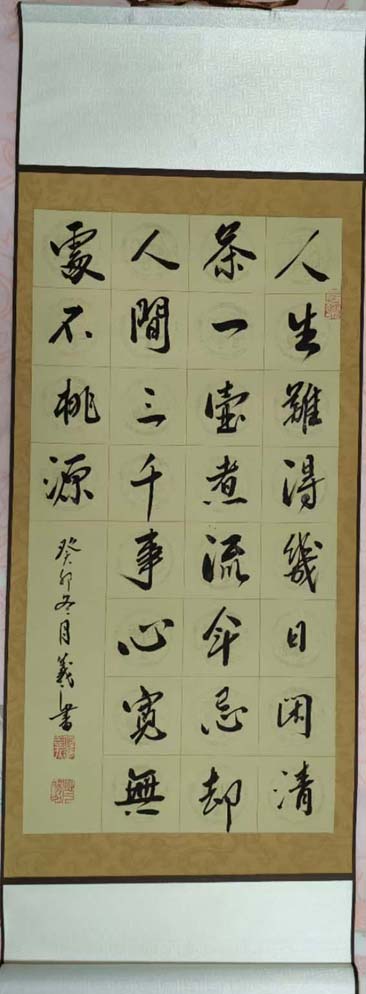 人生難得幾日閑清
茶一壺煮流年忘却
人間三千事心寬無
處不桃源
癸卯冬月義書